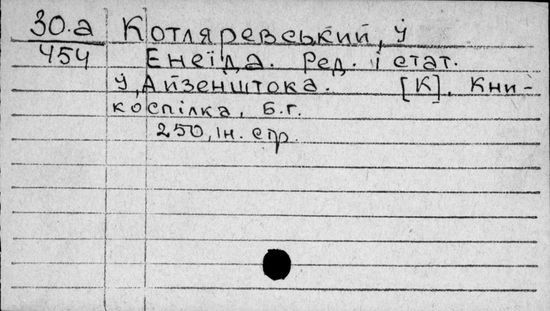 30.а Котляревський, У
454 Енеїда. Ред. і стат.
У, Айзенштока. [К]. Кни-
коспілка, б.г.
250, ін. стр.